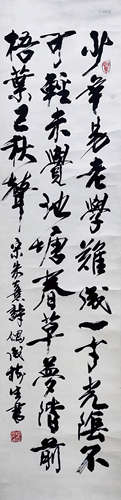 少年易老學難成一寸光陰不
可輕未覺池塘春草夢階前
梧葉已秋聲 宋朱熹詩偶成 書